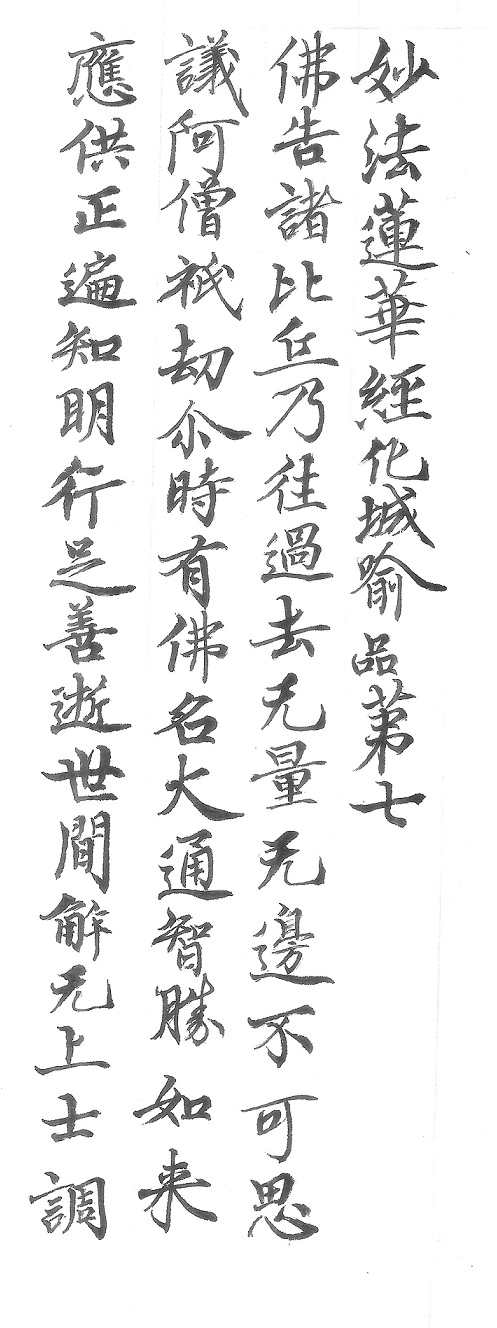 妙法蓮華經化城喻品苐七
佛告諸比丘乃往過去无量无邊不可思
議阿僧祇劫尒時有佛名大通智勝如来
應供正遍知明行足善逝世間解无上士調